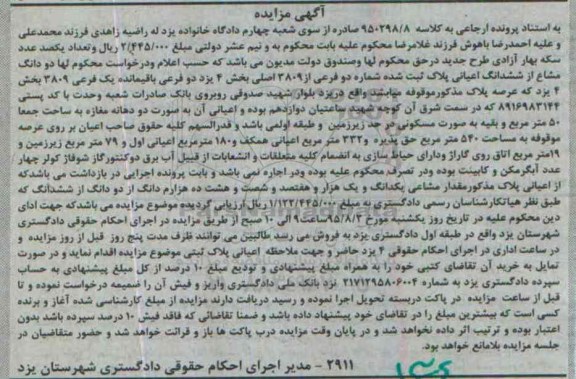 آگهی مزایده
به استناد پرونده ارجاعی به کلاسه ۹۵۰۲۹۸/۸ صادره از سوی شعبه چهارم دادگاه خانواده یزد له راضیه زاهدی فرزند محمدعلی
و علیه احمدرضا باهوش فرزند غلامرضا محکوم علیه بابت محکوم به و نیم عشر دولتی مبلغ ۲/۴۴۵/۰۰۰ ریال وتعداد یکصد عدد
سکه بهار آزادی طرح جدید درحق محکوم لها وصندوق دولت مدیون می باشد که حسب اعلام ودرخواست محکوم لها دو دانگ
مشاع از ششدانگ اعیانی پلاک ثبت شده شماره دو فرعی از۳۸۰۹ اصلی بخش ۴ یزد دو فرعی باقیمانده یک فرعی ۳۸۰۹ بخش
۴ یزد که عرصه پلاک مذکورموقوفه میباشد واقع دریزد بلوار شهید صدوقی روبروی بانک صادرات شعبه وحدت با کد پستی
۸۹۱۶۹۸۳۱۴۴ که در سمت شرق آن کوچه شهید ساعتیان دوازدهم بوده و اعیانی آن به صورت دو دهانه مغازه به ساحت جمعا
۵۰ متر مربع و بقیه به صورت مسکونی در حد زیرزمین و طبقه اولمی باشد و قدرالسهم کلیه حقوق صاحب اعیان بر روی عرصه
موقوفه به مساحت ۵۴۰ متر مربع حق پذیره و۳۳۲ متر مربع اعیانی همکف و۱۸۰ مترمربع اعیانی اول و ۷۹ متر مربع زیرزمین و
۱۹متر مربع اتاق روی گاراژ ودارای حیاط سازی به انضمام کلیه متعلقات و انشعابات از قبیل آب برق دوکنتورگاز شوفاژ کولر چهار
عدد آبگرمکن و کابینت بوده ودر تصرف محکوم علیه بوده ودر اجاره نمی باشد و بابت پرونده اجرایی در بازداشت می باشدکه
از اعیانی پلاک مذکورمقدار مشاعی یکدانگ و یک هزار و هفتصد و شصت و هشت ده هزارم دانگ از دو دانگ از ششدانگ که
طبق نظر هیاتکارشناسان رسمی دادگستری به مبلغ ۱/۱۲۲/۴۴۵/۰۰۰ ریال ارزیابی گردیده موضوع مزایده می باشدکه جهت ادای
دین محکوم علیه در تاریخ روز یکشنبه مورخ ۹۵/۸/۲ساعت ۹ الی ۱۰ صبح از طریق مزایده در اجرای احکام حقوقی دادگستری
شهرستان یزد واقع در طبقه اول دادگستری یزد به فروش می رسد طالبین می توانند ظرف مدت پنج روز قبل از روز مزایده و
در ساعت اداری در اجرای احکام حقوقی ۴ یزد حاضر و جهت ملاحظه اعیانی پلاک ثبتی موضوع مزایده اقدام نماید و در صورت
تمایل به خرید آن تقاضای کتبی خود را به همراه مبلغ پیشنهادی و تودیع مبلغ ۱۰ درصد از کل مبلغ پیشنهادی به حساب
سپرده دادگستری یزد به شماره ۲۱۷۱۲۹۵۸۰۶۰۰۴ نزد بانک ملی دادگستری واریز و فیش آن را ضمیمه درخواست نموده و تا
قبل از ساعت مزایده در پاکت دربسته تحویل اجرا نموده و رسید دریافت دارند مزایده از مبلغ کارشناسی شده آغاز و برنده
کسی است که بیشترین مبلغ را در تقاضای خود پیشنهاد داده باشد و ضمنا تقاضائی که فاقد فیش ۱۰ درصد سپرده باشد بدون
اعتبار بوده و ترتیب اثر داده نخواهد شد و در پایان وقت مزایده درب پاکت ها باز و قرائت خواهد شد و حضور متقاضیان در
جلسه مزایده بلامانع خواهد بود.
۲۹۱۱ - مدیر اجرای احکام حقوقی دادگستری شهرستان یزد